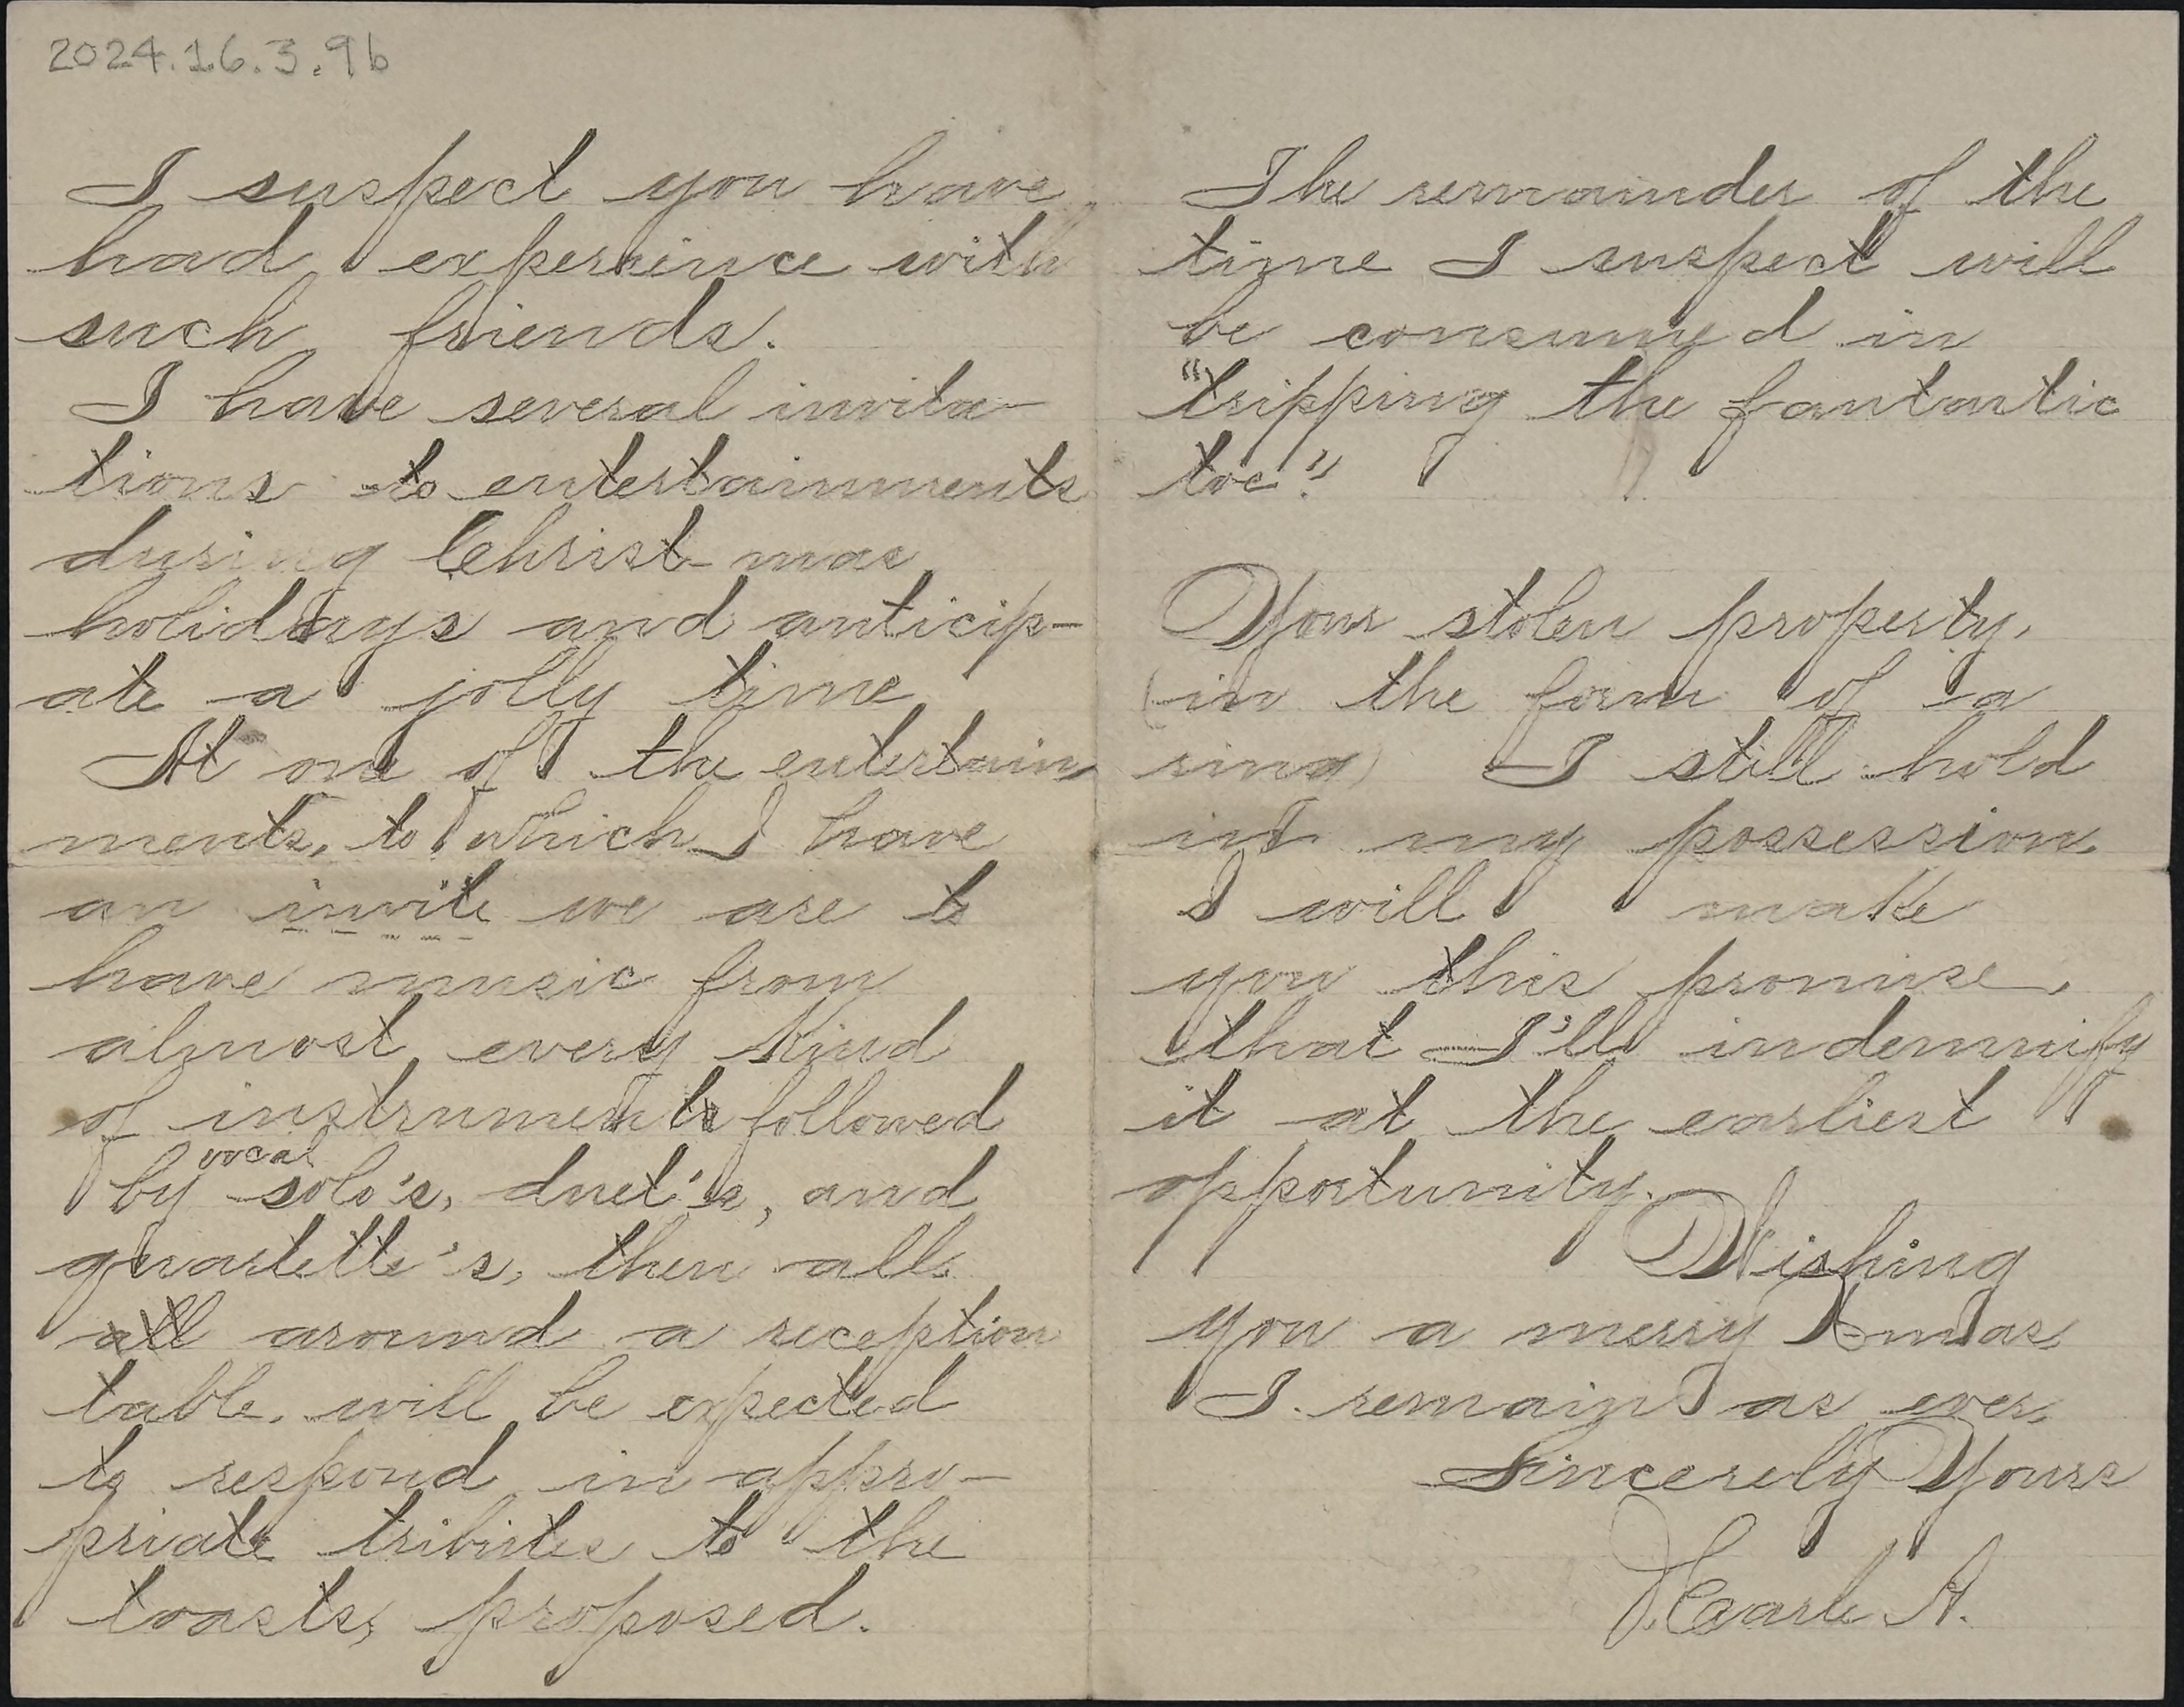 2024.16.3.9b
I suspect you have
had experience with
such friends.
I have several invita-
tions to entertainments
during Christ-mas
holidays and anticip-
ate a jolly time
At one of the entertain
ments, to which I have
an invite we are to
have music from
almost every kind
of instruments followed
by vocal solo's, duet's, and
quartette's, then all
all around a reception
table, will be expected
to respond in appro-
priate tributes to the
toasts, proposed.
The remainder of the
time I suspect will
be consumed in
"tripping the fantantic
toe."
Your stolen property,
(in the form of a
ring) I still hold
in my possession
I will make
you this promise,
that I'll indemnify
it at the earliest
opportunity.
Wishing
you a merry Xmas
I remain as ever,
Sincerely Yours
A.